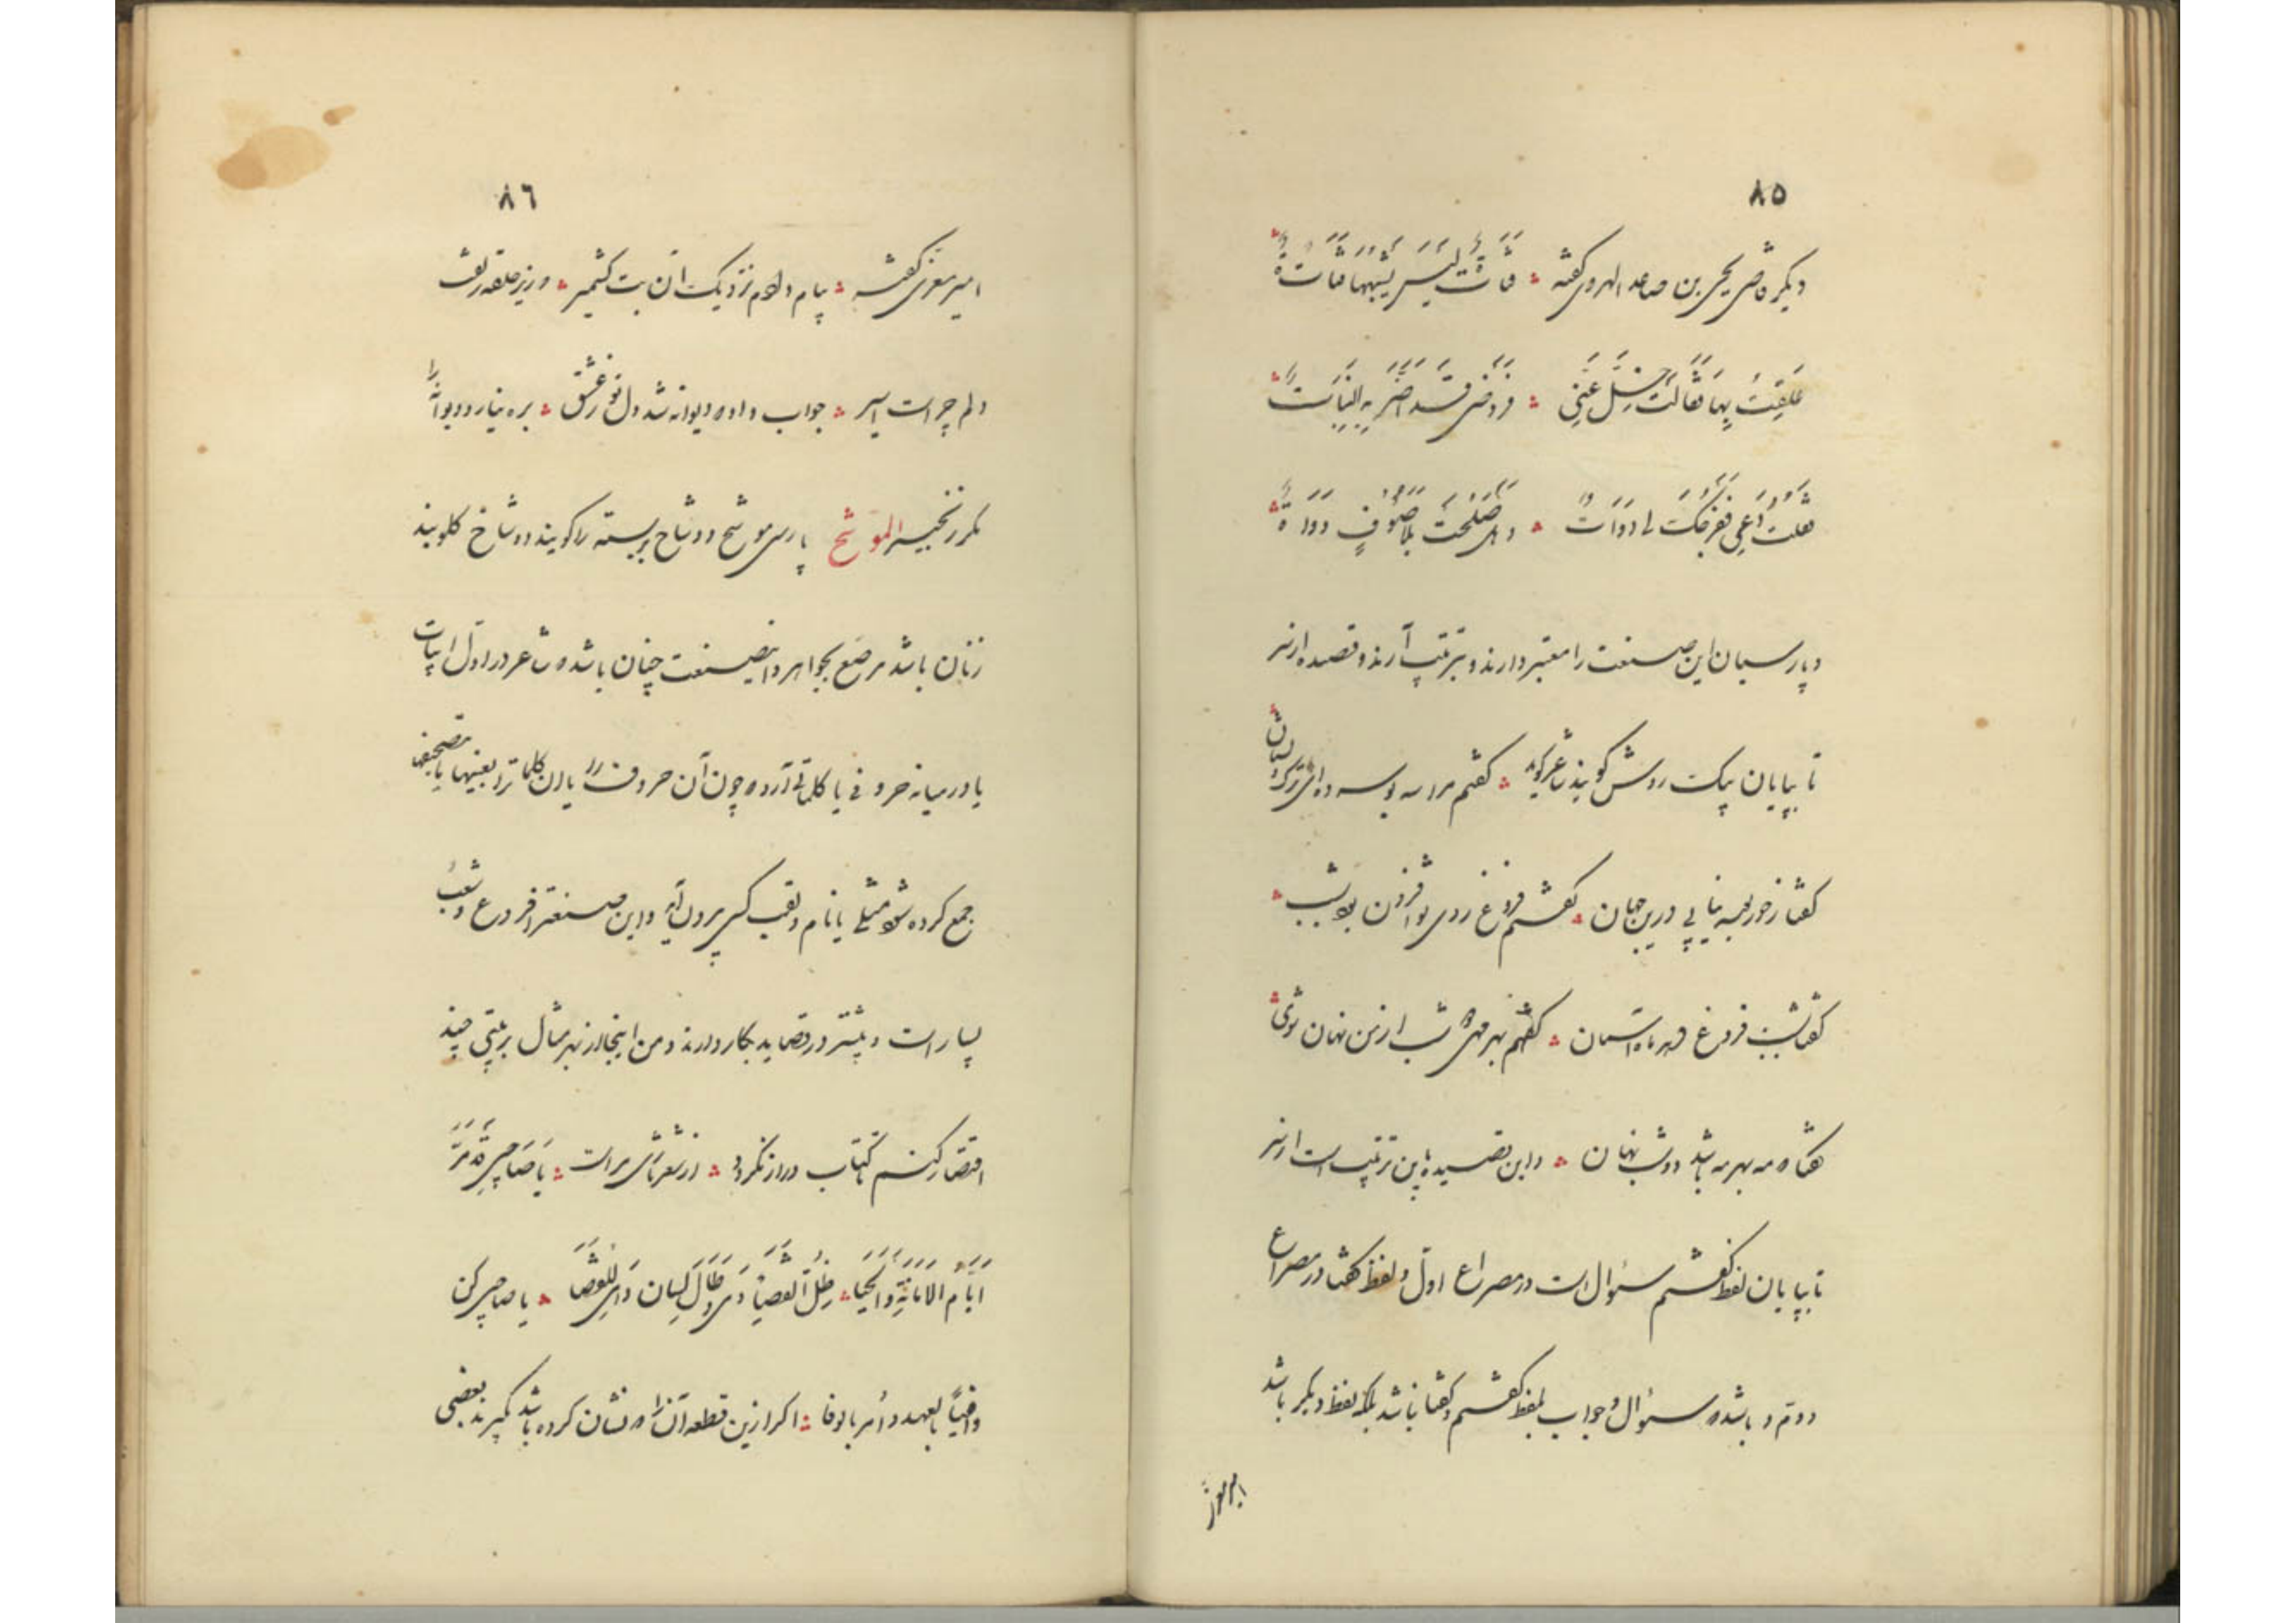 ٨٥
دیکر قاضی یحیی بن صاعد الهروی کفته ؞ فتاة لیس یشبهها فتاة
علقت بها فقالت خل عنی ؞ فرفضی قد اضر به البنات
فقلت دعی فقالت لی دوات ؞ وهل صلحت بلا صوف دواة
و پارسیان این صنعت را معتبر دارند و بترتیب آرند و قصیده از سر
تا بپایان یک روش کویند شاعر کوید ؞ کفتم مرا سه بوسه ده ای ترک دلستان
کفتا ز حور بوسه نیابی درین جهان ؞ کفتم فروغ روی تو افزون بود بشب
کفتا بشب فروغ دهد ماه آسمان ؞ کفتم بهر مهی شب از من نهان شوی
کفتا که مه بهر مه باشد دو شب نهان ؞ و این قصیده باین ترتیب است از سر
تا بپایان لفظ کفتم سؤال است در مصراع اول و لفظ کفتا در مصراع
دوم و باشد که سؤال و جواب بلفظ کفتم و کفتا نباشد بلکه بلفظ دیکر باشد
امیر معزی
٨٦
امیر معزی کفته ؞ پیام دادم نزدیک آن بت کشمیر ؞ که زیر حلقه زلفت
دلم چراست اسیر ؞ جواب داد که دیوانه شد دل تو ز عشق ؞ بره نیارد دیوانه را
مکر زنجیر الموشح پارسی موشح و وشاح بربسته را کویند و وشاخ کلوبند
زنان باشد مرصع بجواهر و این صنعت چنان باشد که شاعر در اول ابیات
یا در میانه حروفی یا کلماتی آرد که چون آن حروف را یا آن کلمات را بعینها یا بتصحیفها
جمع کرده شود مثلی یا نام و لقب کسی بیرون آید و این صنعت را فروع و شعب
بسیار است و بیشتر در قصاید بکار دارند و من اینجا از بهر مثال بر بیتی چند
اقتصار کنم تا کتاب دراز نکردد ؞ از شعر تازی مراست ؞ یا صاحبی قد مر
ایام الامانة والحیا ؞ ظل القضاة وطال لسان ؞ یا صاحبی کن
وافیا بالعهد وأمر بالوفا ؞ اکر ازین قطعه آنرا که نشان کرده باشد کیرند بعضی